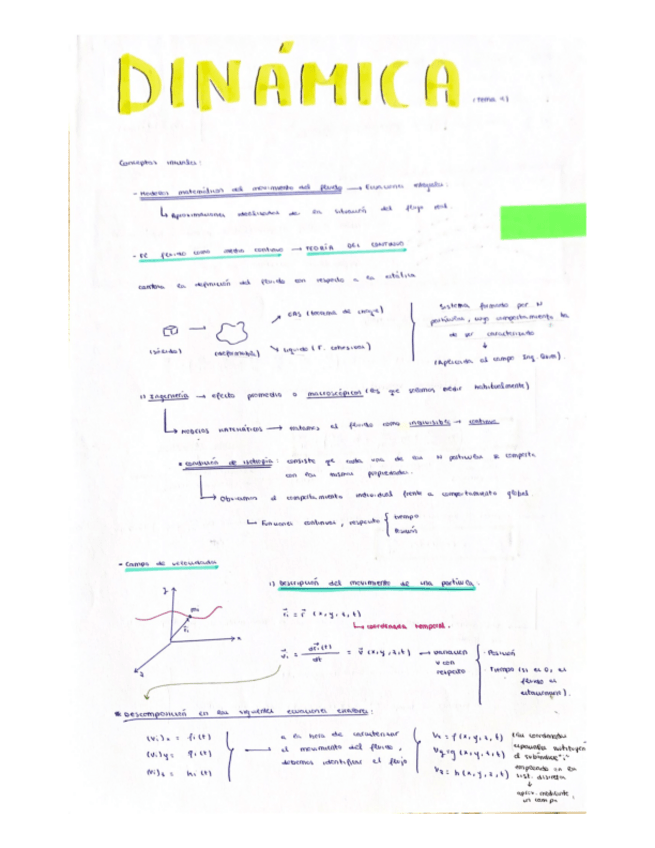 DINÁMICA (Tema 4)
Conceptos iniciales:
- Modelos matemáticos del movimiento del fluido → Ecuaciones
↳ Aproximaciones idealizadas de la situación del flujo real.
- El fluido como medio continuo → TEORÍA DEL CONTINUO
cambia la definición del fluido con respecto a la estática
GAS
(sólido) → (deformable)
líquido (F. cohesivas)
Sistema formado por N
partículas, cuyo comportamiento ha
de ser caracterizado
↓
(Aplicado al campo Ing. Quím).
1) Ingeniería → efecto promedio o macroscópicos (los que solemos medir habitualmente)
↳ MODELOS MATEMÁTICOS → el fluido como indivisible → continuo
* Condición de isotropía: consiste que cada una de las N partículas se comporta
con las mismas propiedades.
↳ Obviamos el comportamiento individual frente a comportamiento global.
↳ Funciones continuas, respecto { tiempo
Posición
- Campo de velocidades
1) Descripción del movimiento de una partícula.
y
mi
r⃗i
x
z
r⃗i = r⃗ (x, y, z, t)
↳ coordenada temporal.
v⃗i = dr⃗i(t)/dt = v⃗ (x, y, z, t) → variación
v con
respecto
· Posición
· Tiempo (si es 0, el
fluido es
estacionario).
* Descomposición en las siguientes ecuaciones escalares:
(vi)x = fi (t)
(vi)y = gi (t)
(vi)z = hi (t)
→ a la hora de caracterizar
el movimiento del fluido,
debemos identificar el flujo
Vx = f (x, y, z, t)
Vy = g (x, y, z, t)
Vz = h (x, y, z, t)
coordenadas
espaciales sustituyen
el subíndice "i"
empleado en la
sist. discreta
↓
aprox. mediante
un campo